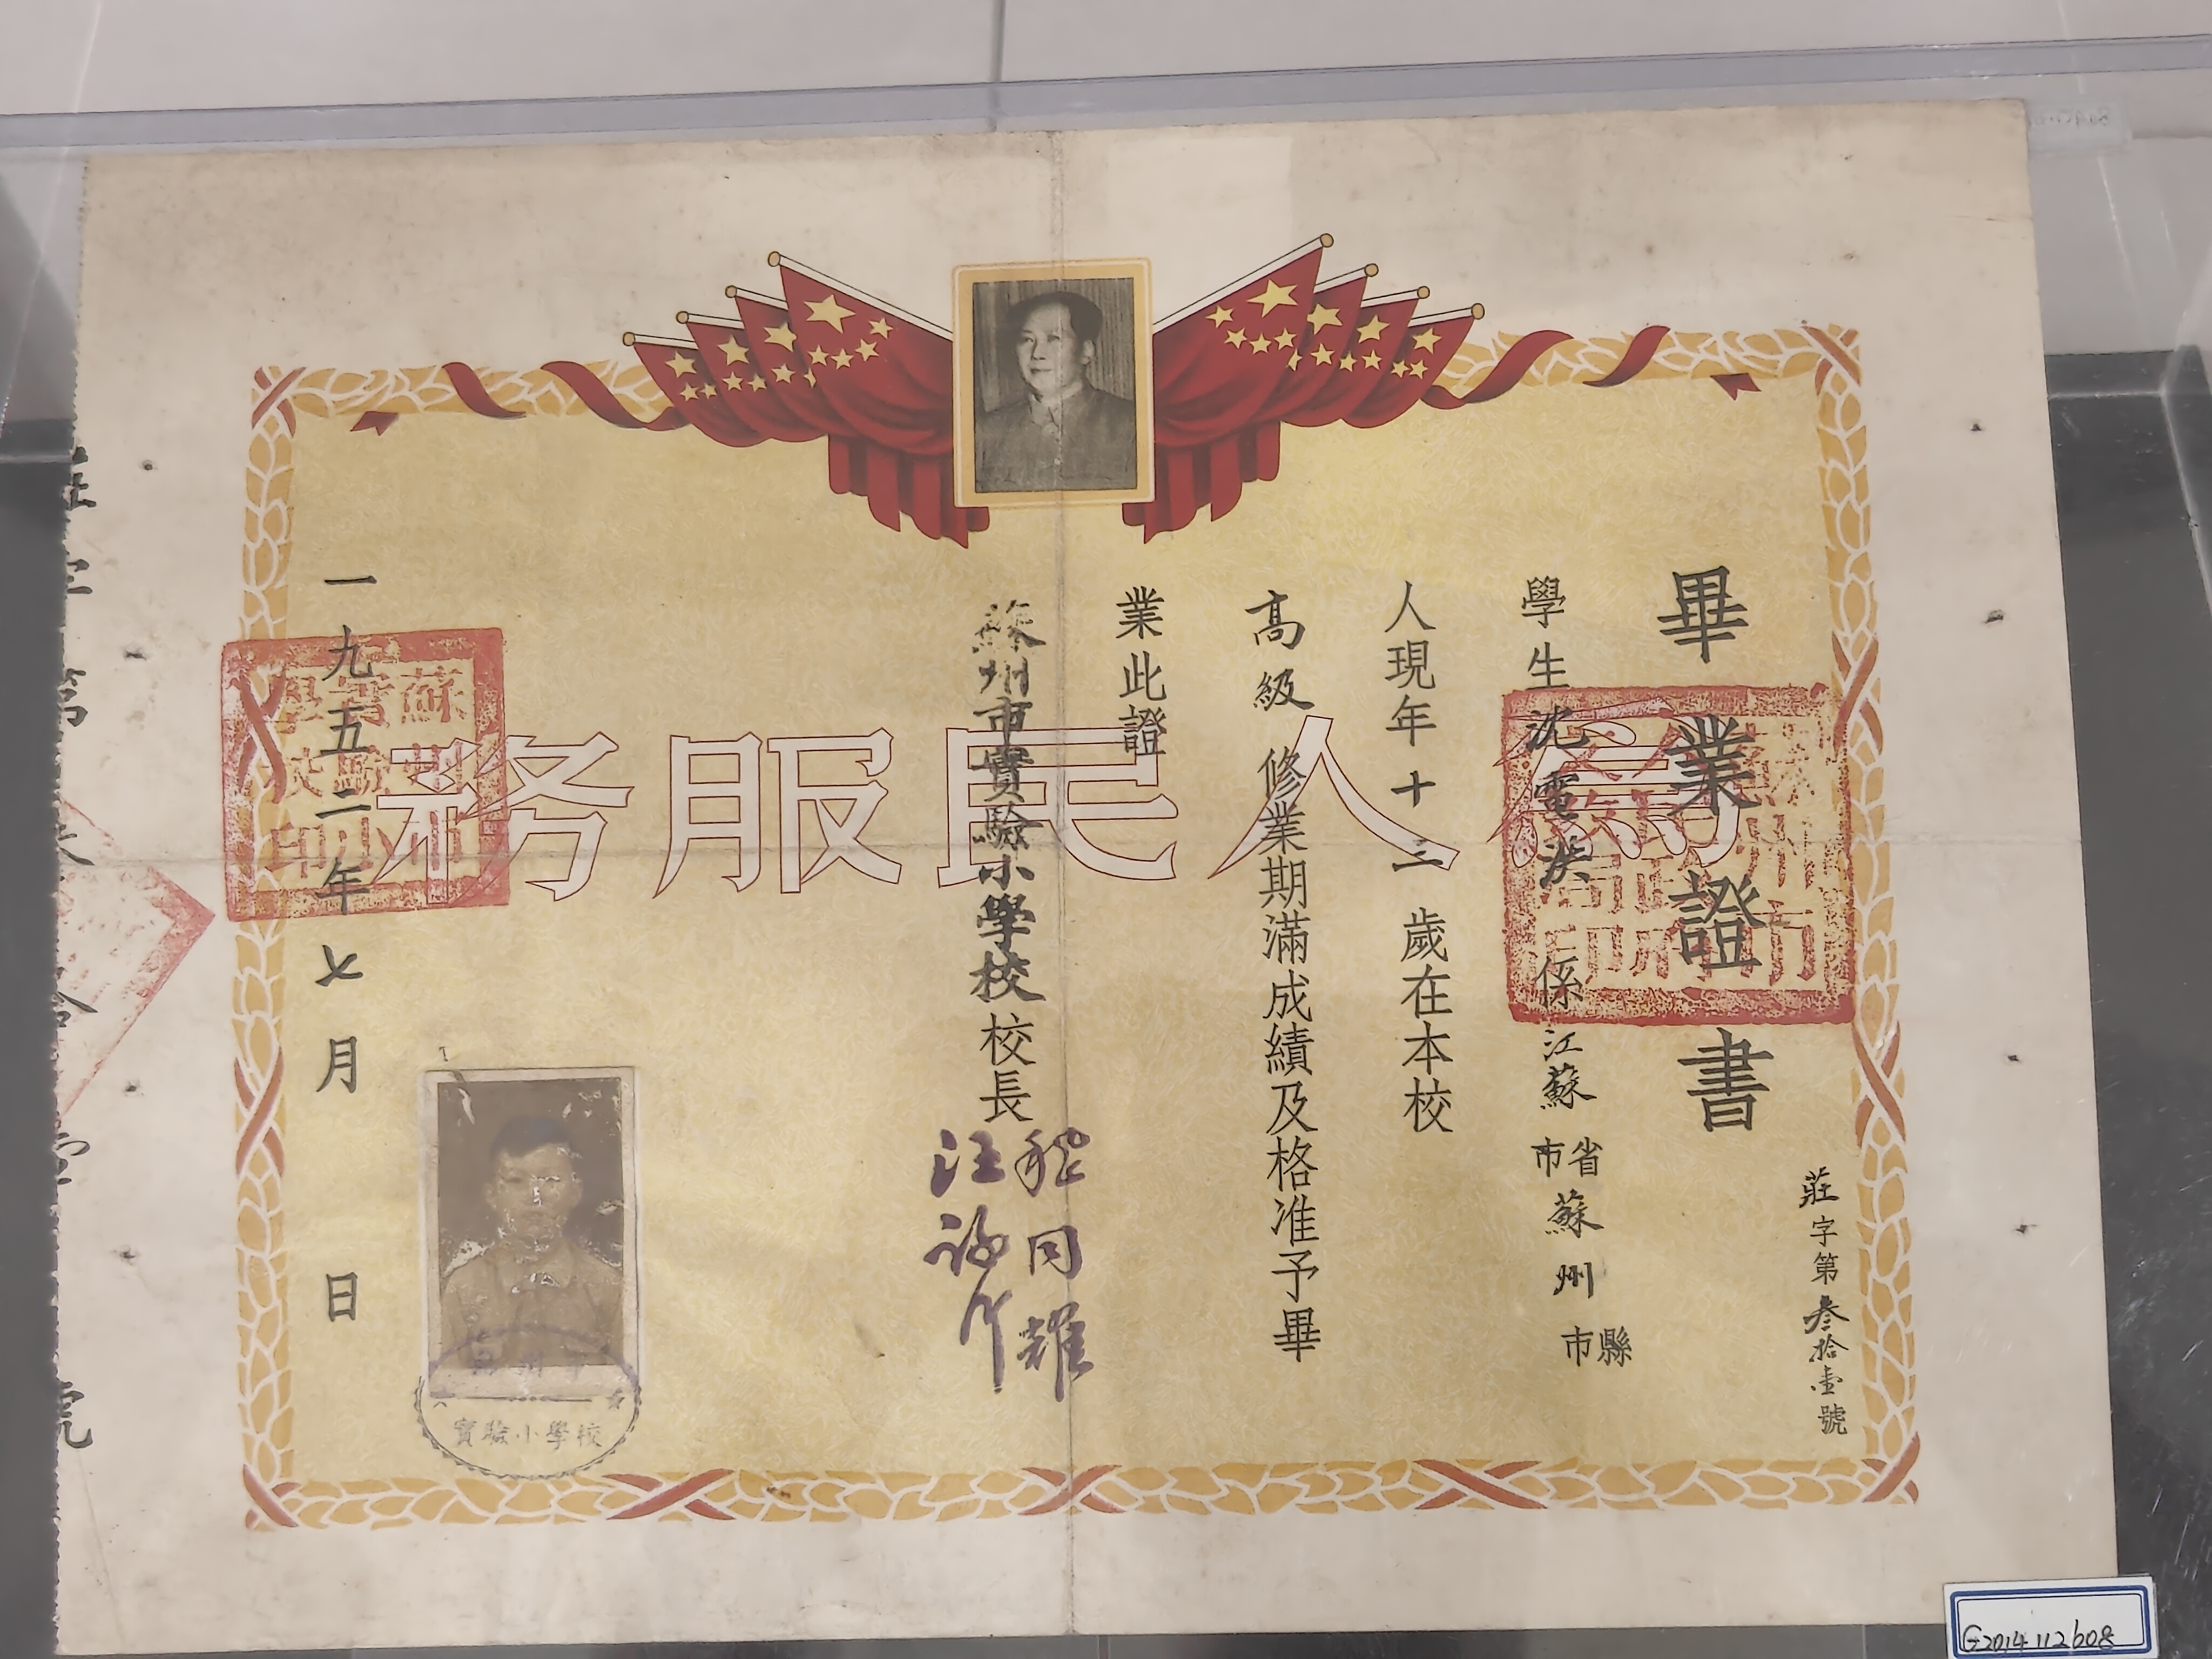 畢業證書
莊字第叁拾壹號
學生沈電洪係江蘇省市蘇州縣市
人現年十二歲在本校
高級修業期滿成績及格准予畢
業此證
蘇州市實驗小學校校長
同耀
汪
一九五二年七月日
為人民服務
蘇州市
實驗小學校
蘇州市實驗小學校印
G2014112608